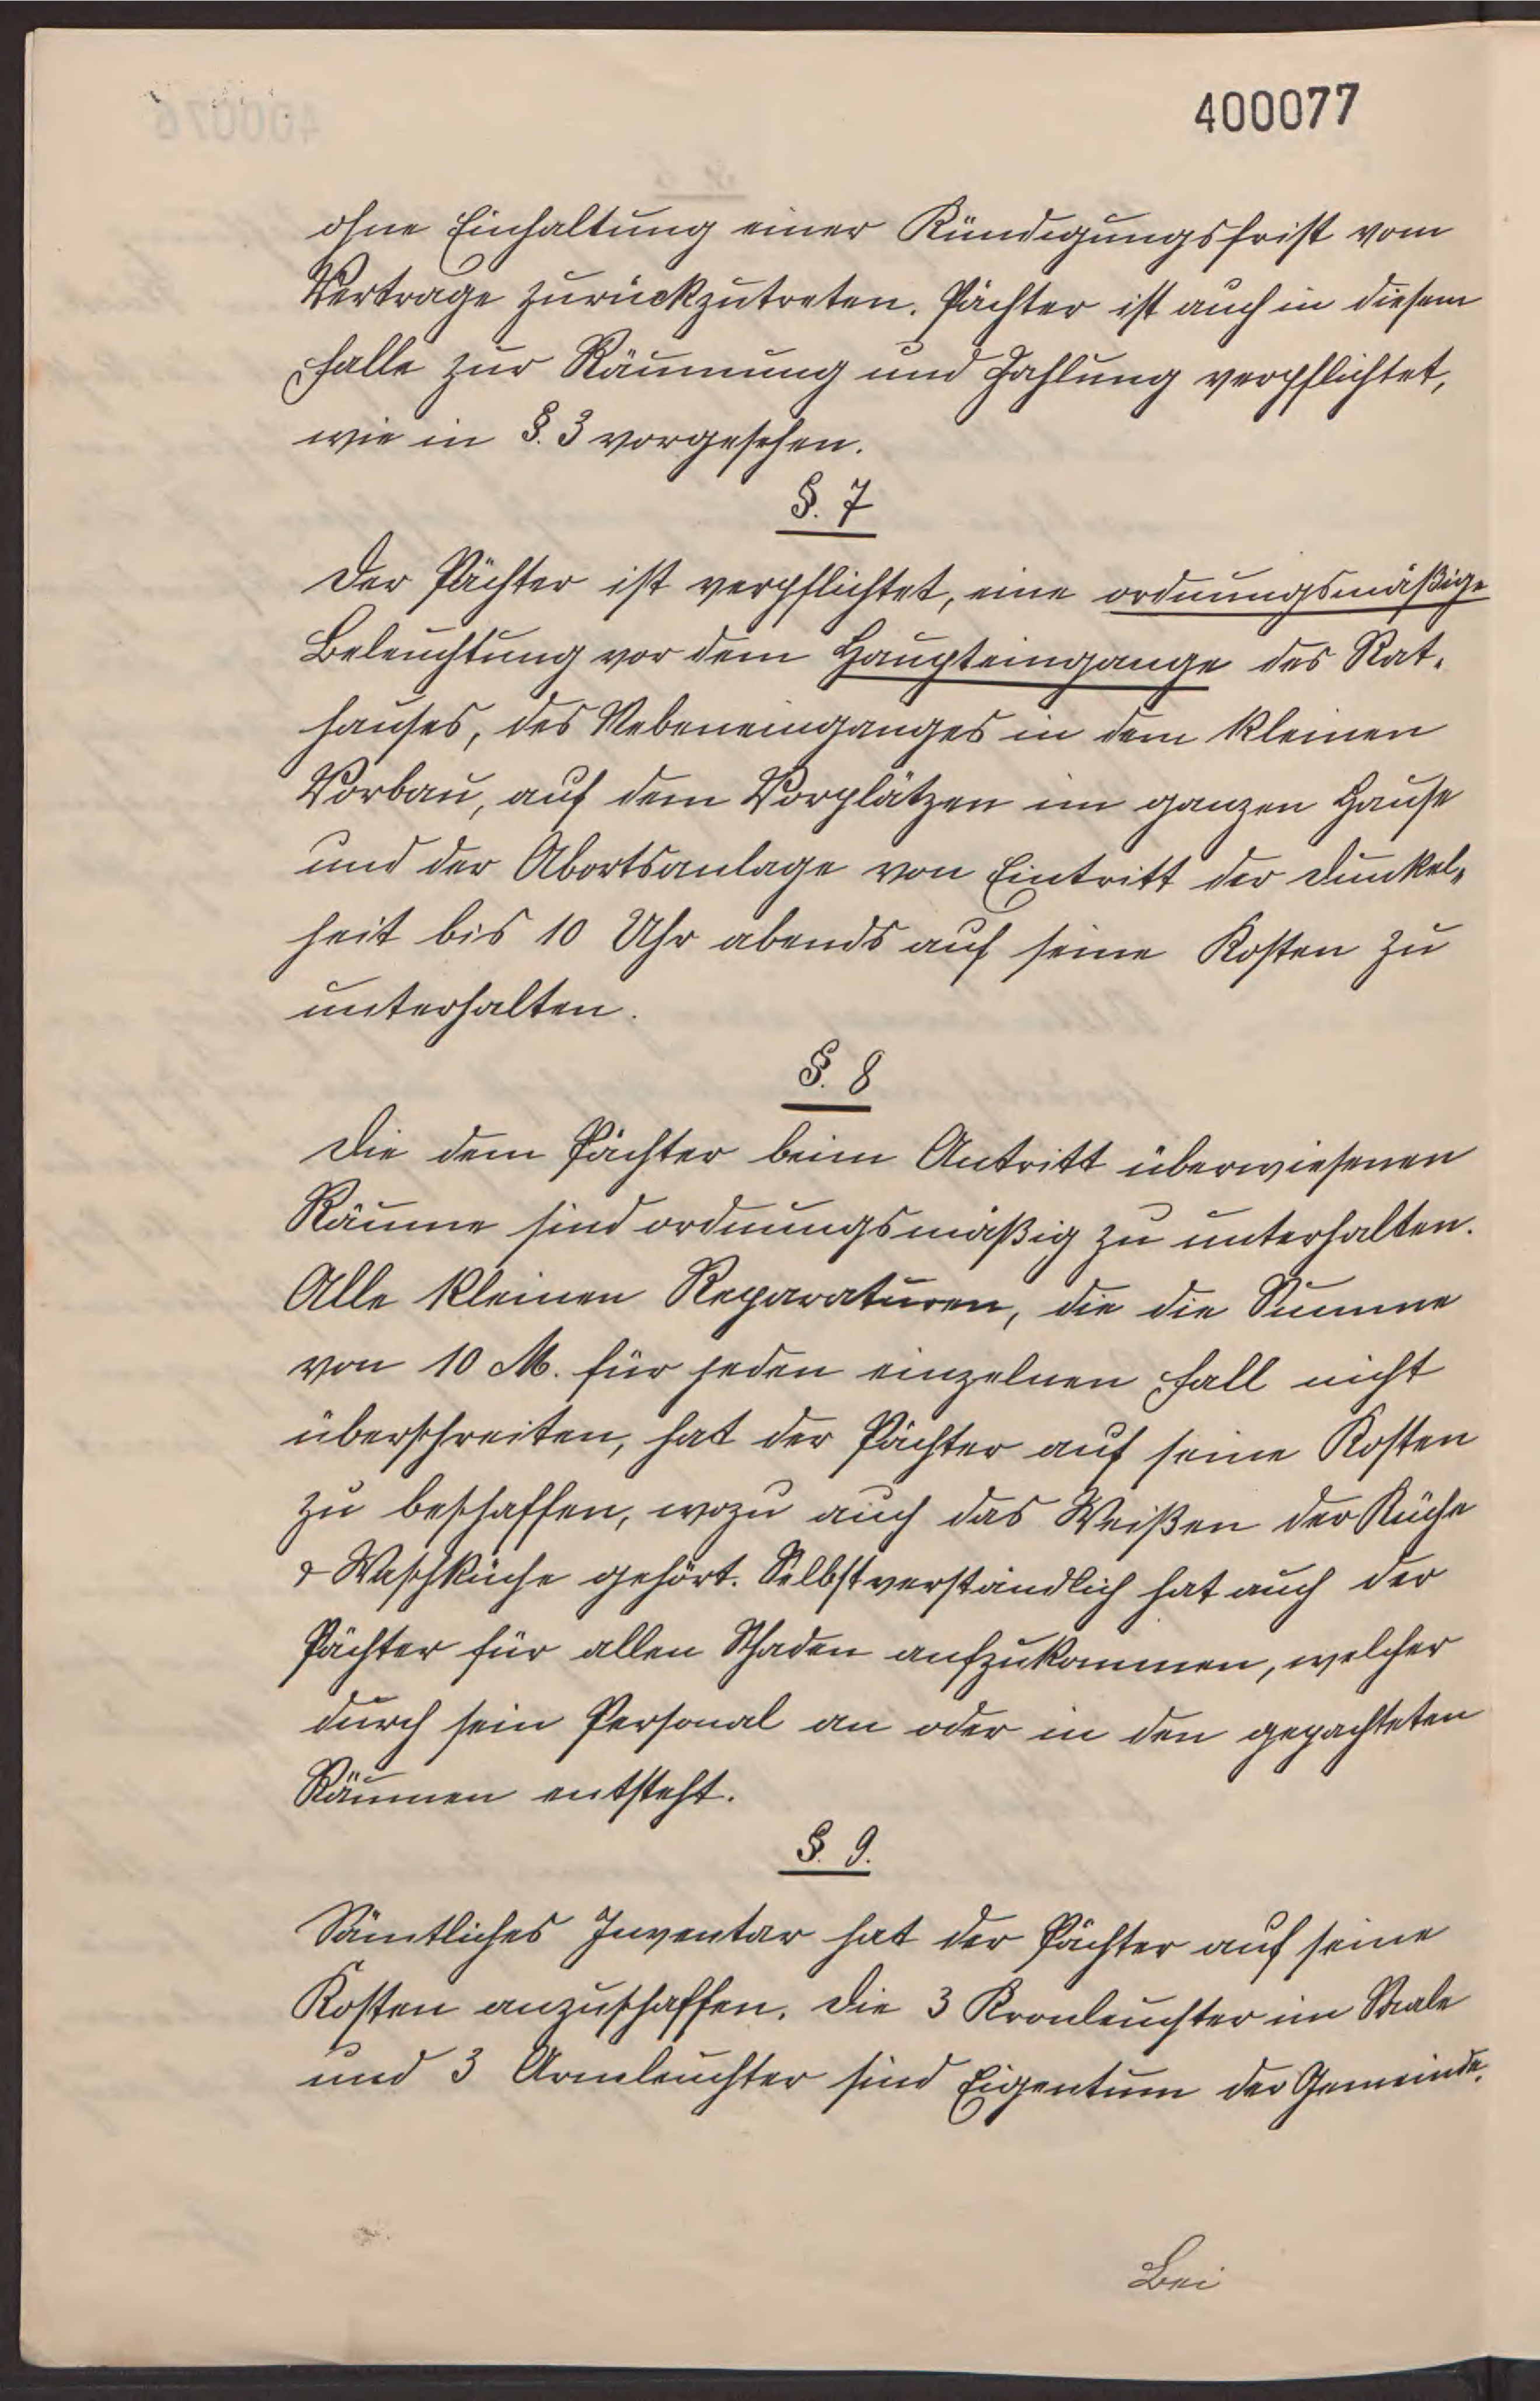 400077
ohne Einhaltung einer Kündigungsfrist vom
Vertrage zurückzutreten. Pächter ist auch in diesem
Falle zur Räumung und Zahlung verpflichtet,
wie in §. 3 vorgesehen.
§. 7
Der Pächter ist verpflichtet, eine ordnungsmäßige
Beleuchtung vor dem Haupteingange des Rat-
hauses, des Nebeneinganges in dem kleinen
Vorbau, auf dem Vorplätzen im ganzen Hause
und der Abortsanlage von Eintritt der Dunkel-
heit bis 10 Uhr abends auf seine Kosten zu
unterhalten.
§. 8
Die dem Pächter beim Antritt überwiesenen
Räume sind ordnungsmäßig zu unterhalten.
Alle kleinen Reparaturen, die die Summe
von 10 M. für jeden einzelnen Fall nicht
überschreiten, hat der Pächter auf seine Kosten
zu beschaffen, wozu auch das Weißen der Küche
& Waschküche gehört. Selbstverständlich hat auch der
Pächter für allen Schaden aufzukommen, welcher
durch sein Personal an oder in den gepachteten
Räumen entsteht.
§. 9.
Sämtliches Inventar hat der Pächter auf seine
Kosten anzuschaffen. Die 3 Kronleuchter im Saale
und 3 Armleuchter sind Eigentum der Gemeinde.
Bei